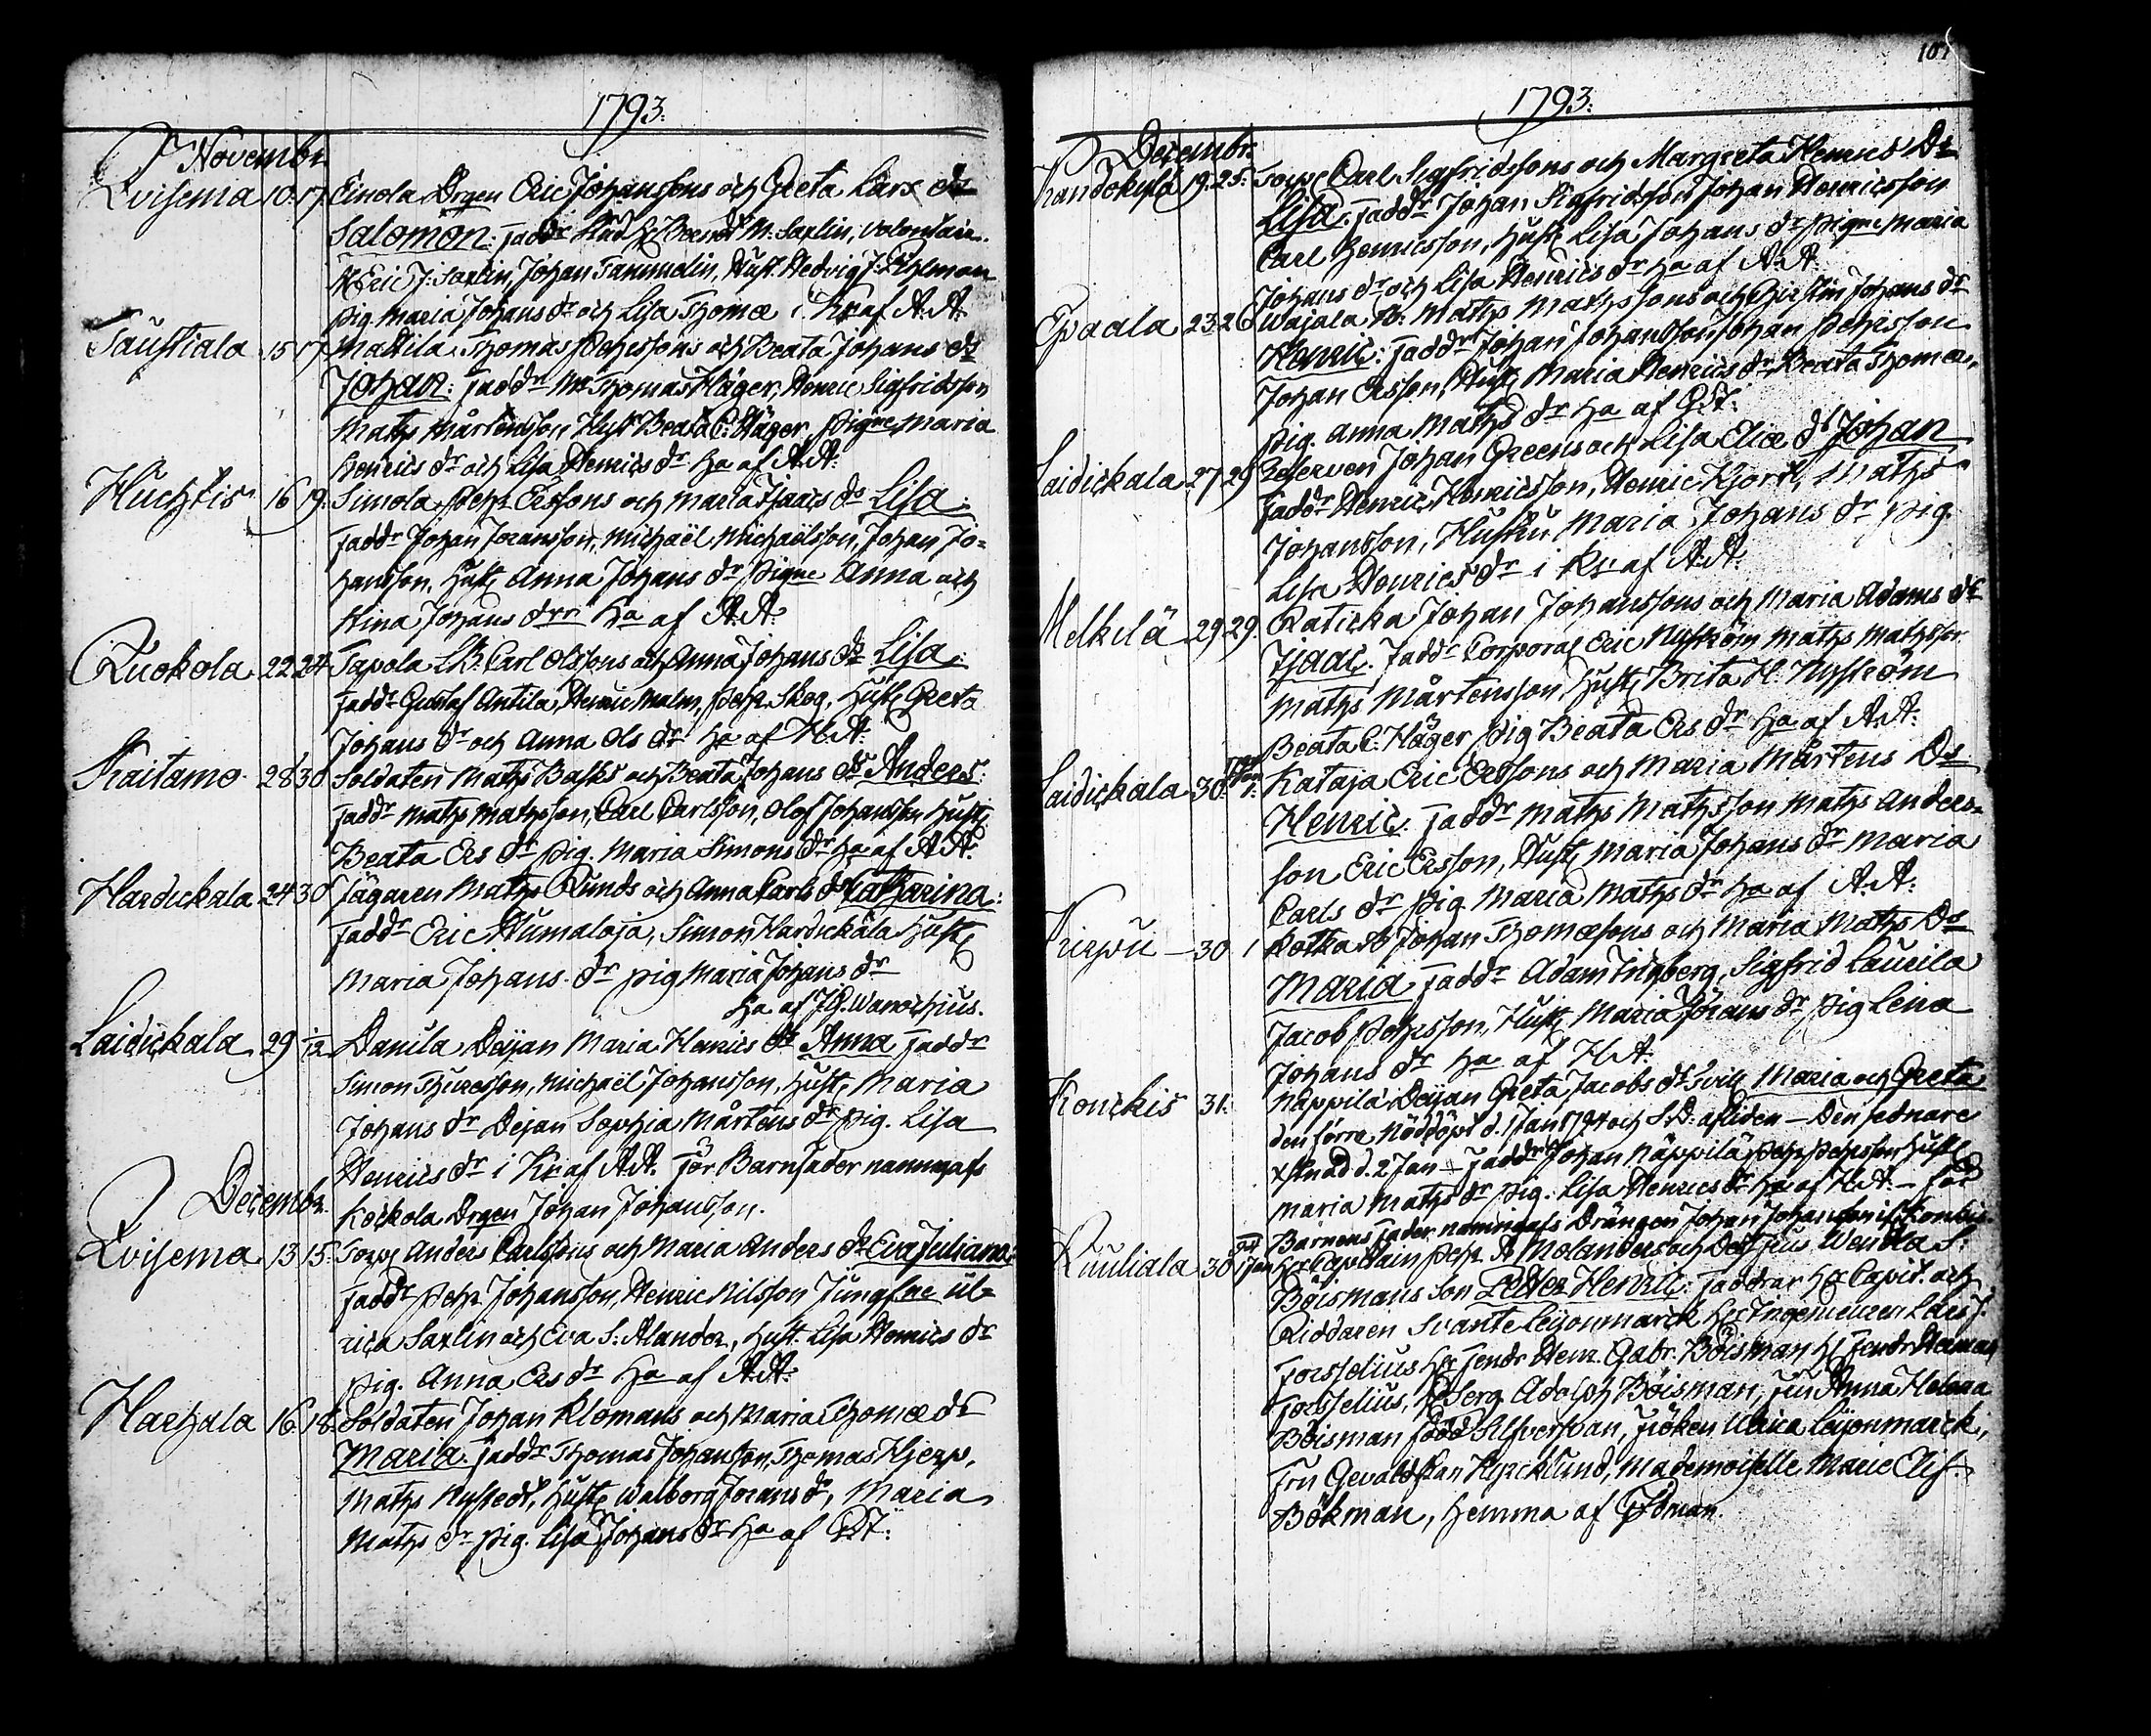 1793.
Novembr.
Qvisema 10. 17. Einola Drgen Eric Johanssons och Greta Lars dr
Salomon: faddr Stud Hr Berndt M. Saxlin, volontairn
Hr Eric J: Saxlin, Johan Tammelin, Hust. Hedvig J: Ahlman
pig. Maria Johans dr och Lisa Thomæ i Kr af A. A.
Taustiala 15 17 Mattila Thomas Pehrssons och Beata Johans dr
Johan: faddr Mr Thomas Häger, Henric Sigfridsson
Maths Mårtensson Hustr Beata C: Häger, pigne Maria
Henrics dr och Lisa Henrics dr ha af A. A:
Huchtis 16 19. Simola Pehr Erssons och Maria Isaacs dr Lisa:
faddr Johan Joransson, Michaël Michaëlsson, Johan Jo=
hansson, Hustr Anna Johans dr pigne Anna och
Stina Johans drr ha af A. A:
Ruokola 22 24 Tapola Carl Olssons och Anna Johans dr Lisa:
faddr Gustaf Antila, Henric Malm, Pehr Skog, Hustr Greta
Johans dr och Anna Ols dr ha af H. A:
Kaitamo 28 30 Soldaten Maths Basks och Beata Johans dr Anders:
faddr Maths Mathsson, Carl Carlsson, Olof Johansson Hustr
Beata Ers dr pig. Maria Simons dr ha af A A.
Hardickala 24 30 Jägaren Maths Runds och Anna Carls dr Catharina:
faddr Eric Humaloja, Simon Hardickala Hustr
Maria Johans dr pig Maria Johans dr
ha af J. G. Wanochius.
Laidickala 29 1/12 Danila Dejan Maria Henrics dr Anna faddr
Simon Thuresson, Michaël Johansson, Hustr Maria
Johans dr Dejan Sophia Mårtens dr pig. Lisa
Henrics dr i Kr af A. A. för Barnfader namngafs
Kockola Drgen Johan Johansson.
Decembr.
Qvisema 13 15. Torpr Anders Carlssons och Maria Anders dr Eva Juliana:
faddr Pehr Johansson, Henric Nilsson Jungfne Ul=
rica Saxlin och Eva S: Alander, Hust. Lisa Henrics dr
pig. Anna Ers dr ha af A. A:
Harhala 16. 18. Soldaten Johan Klomans och Maria Thomæ dr
Maria. faddr Thomas Johansson, Thomas Hjerp,
Maths Nystedt, Hustr Walborg Jorans dr, Maria
Maths dr pig. Lisa Johans dr ha af
107
1793.
Decembr.
19. 25. Torpr Carl Sigfridssons och Margreta Henrics Dr
Lisa. faddr Johan Sigfridsson Johan Henricsson
Carl Henricsson, Hustr Lisa Johans dr pigne Maria
Johans dr och Lisa Henrics dr ha af A. A:
23 26 Wajala B: Maths Mathssons och Christin Johans dr
Henric: faddr Johan Johansson Johan Pehrsson
Johan Ersson, Hustr Maria Henrics dr Beata Thomæ,
pig. Anna Maths dr ha af
Laidickala 27 29 Reserven Johan Greens och Lisa Eliæ dr Johan
faddr Henric Henricsson, Henric Hjort, Maths
Johansson, Hustru Maria Johans dr pig.
Lisa Henrics dr i Kr af A. A:
Melkilä 29 29. Raticka Johan Johanssons och Maria Adams dr
Isaac. faddr Corporal Eric Nyström Maths Mathsson
Maths Mårtensson, Hustr Brita H. Nyström
Beata C: Häger pig Beata Ers dr ha af A. A:
Laidickala 30. 1. Kataja Eric Erssons och Maria Mårtens Dr
Henric. faddr Maths Mathsson Maths Anders=
son Eric Ersson, Hustr Maria Johans dr Maria
Carls dr pig Maria Maths dr ha af A. A:
30 1 Kotka Johan Thomæsons och Maria Maths Dr
Maria faddr Adam Inberg, Sigfrid Laurila
Jacob Pehrsson, Hustr Maria Jorans dr pig Lena
Johans dr ha af H. A:
31. Näppilä Dejan Greta Jacobs dr tvill Maria och Greta
den förra Nöddöpt d. 1 Jan 1794 och S. D. afliden — Den sednare
xstnad d. 2 Jan faddr Johan Näppilä Pehr Pehrsson Hustr
Maria Maths dr pig. Lisa Henrics dr ha af H. A. — för
Barnens fader namngafs Drängen Johan Johansson i
Ruuliala 30 1 Jan Hr Capitain Pehr Molanders och Dess Frus Wendla S:
Böismans Son Petter Henric: faddrar Hr Capit. och
Riddaren Svante Leijonmarck Hr Ingenieuren Lars J.
Forsselius Hr Fendr Henr. Gabr. Böisman Hr Fendr Herman
Forsselius, Hr Serg. Adolph Böisman, Fru Anna Helena
Böisman född Silfversvan, Fröken Ulrica Leijonmarck,
Fru Gevaldskan Hyrcklund, Mademoiselle Marie Elis.
Bökman, hemma af Ödman.